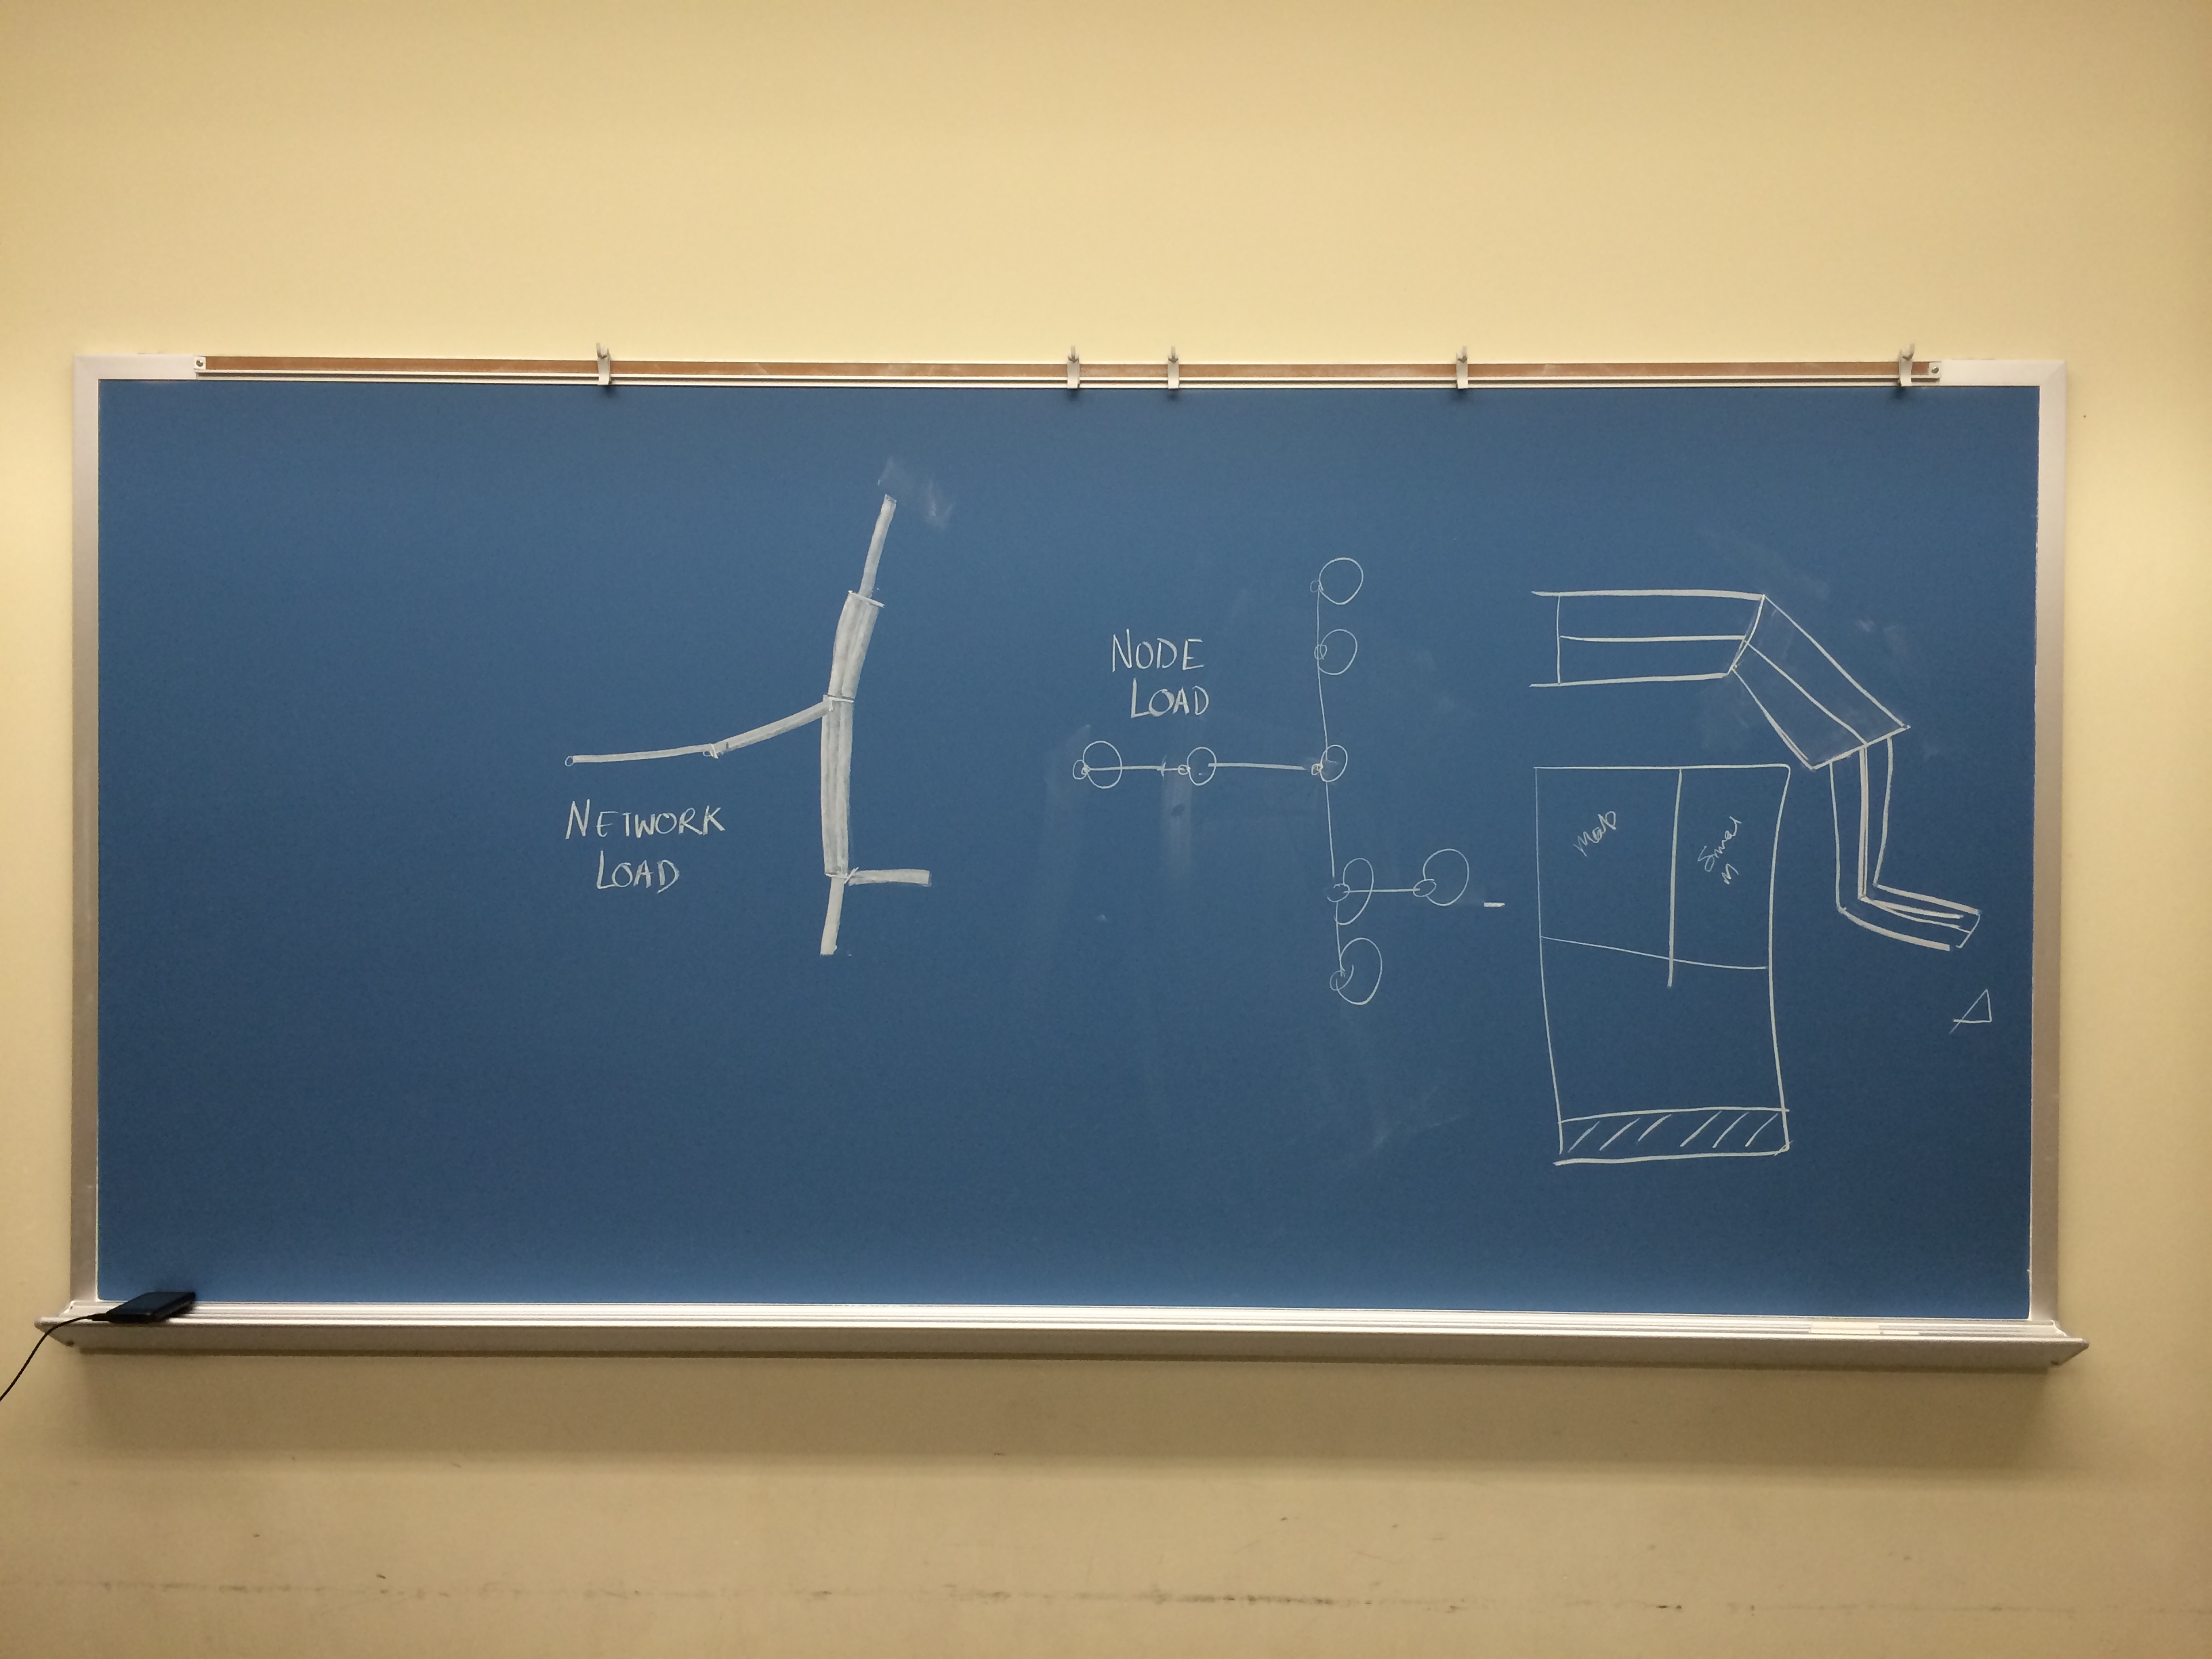 NETWORK
LOAD
NODE
LOAD
Map